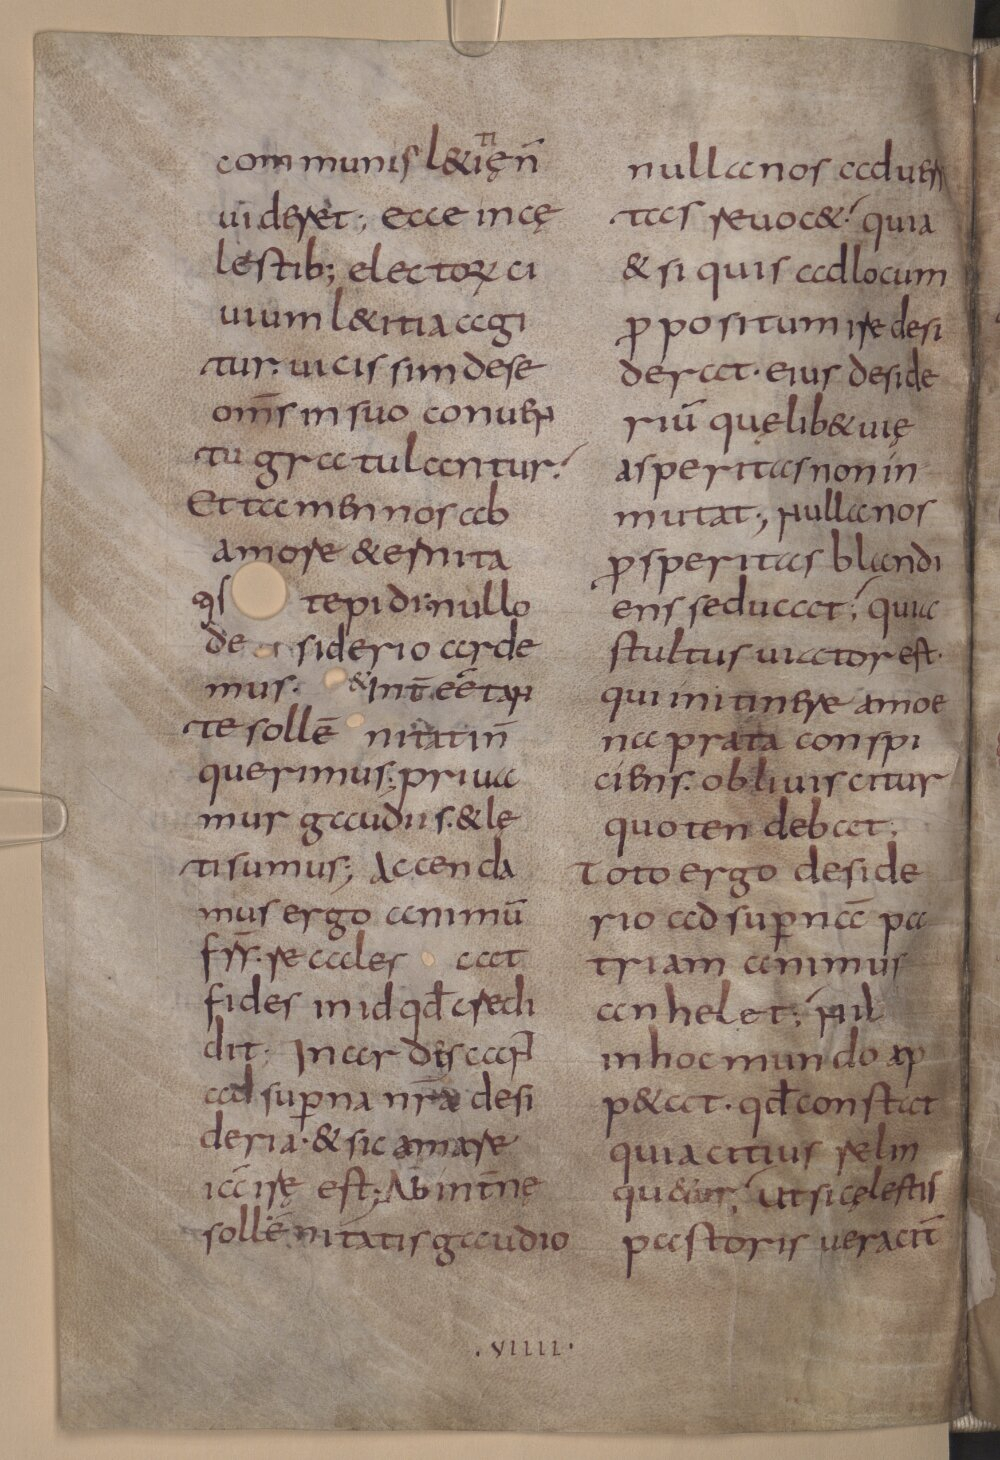 communis l&itięn̄
uideret; ecce incę
lestib; electoꝝ ci
uium l&itia agi
tur. uicissim dese
om̄s insuo conuen
tu gratulantur;
Et tamen nos ab
amore &ernita
tepidi. nullo
desiderio arde
mus. & int̄eē tan
te sollē nitatiñ
querimus; priua
mur gaudiis. &lę
tisumus; Accenda
mus ergo animū
fr̄r. recales cat
fides inid qd̄ credi
dit; In ar descant
ad suꝑna nr̄a desi
deria. & sic amare
iā irę est; Ab int̄nę
sollēnitatis gaudio
nulla nos aduersi
tas reuoc&; quia
& si quis adlocum
ꝓpositum ire desi
derat. eius deside
riū quęlib& uię
asperitas non in
mutat; Nulla nos
ꝓsperitas blandi
ens seducat; quia
stultus uiator est.
qui initinere amoe
na prata conspi
ciens. obliuiscitur
quo tendebat;
Toto ergo deside
rio ad suꝑnā pa
triam animus
anhelet; Nil
inhoc mundo ap
p&at. qd̄ constat
quia citius relin
quat; Ut si cęlestis
pastoris ueracit̄
.VIIII.